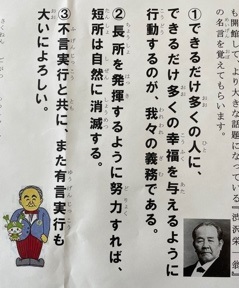 も開館して、より大きな話題になっている『渋沢栄一翁』
の名言を覚えてもらいます。
①できるだけ多くの人に、
できるだけ多くの幸福を与えるように
行動するのが、我々の義務である。
②長所を発揮するように努力すれば、
短所は自然に消滅する。
③不言実行と共に、また有言実行も
大いによろしい。